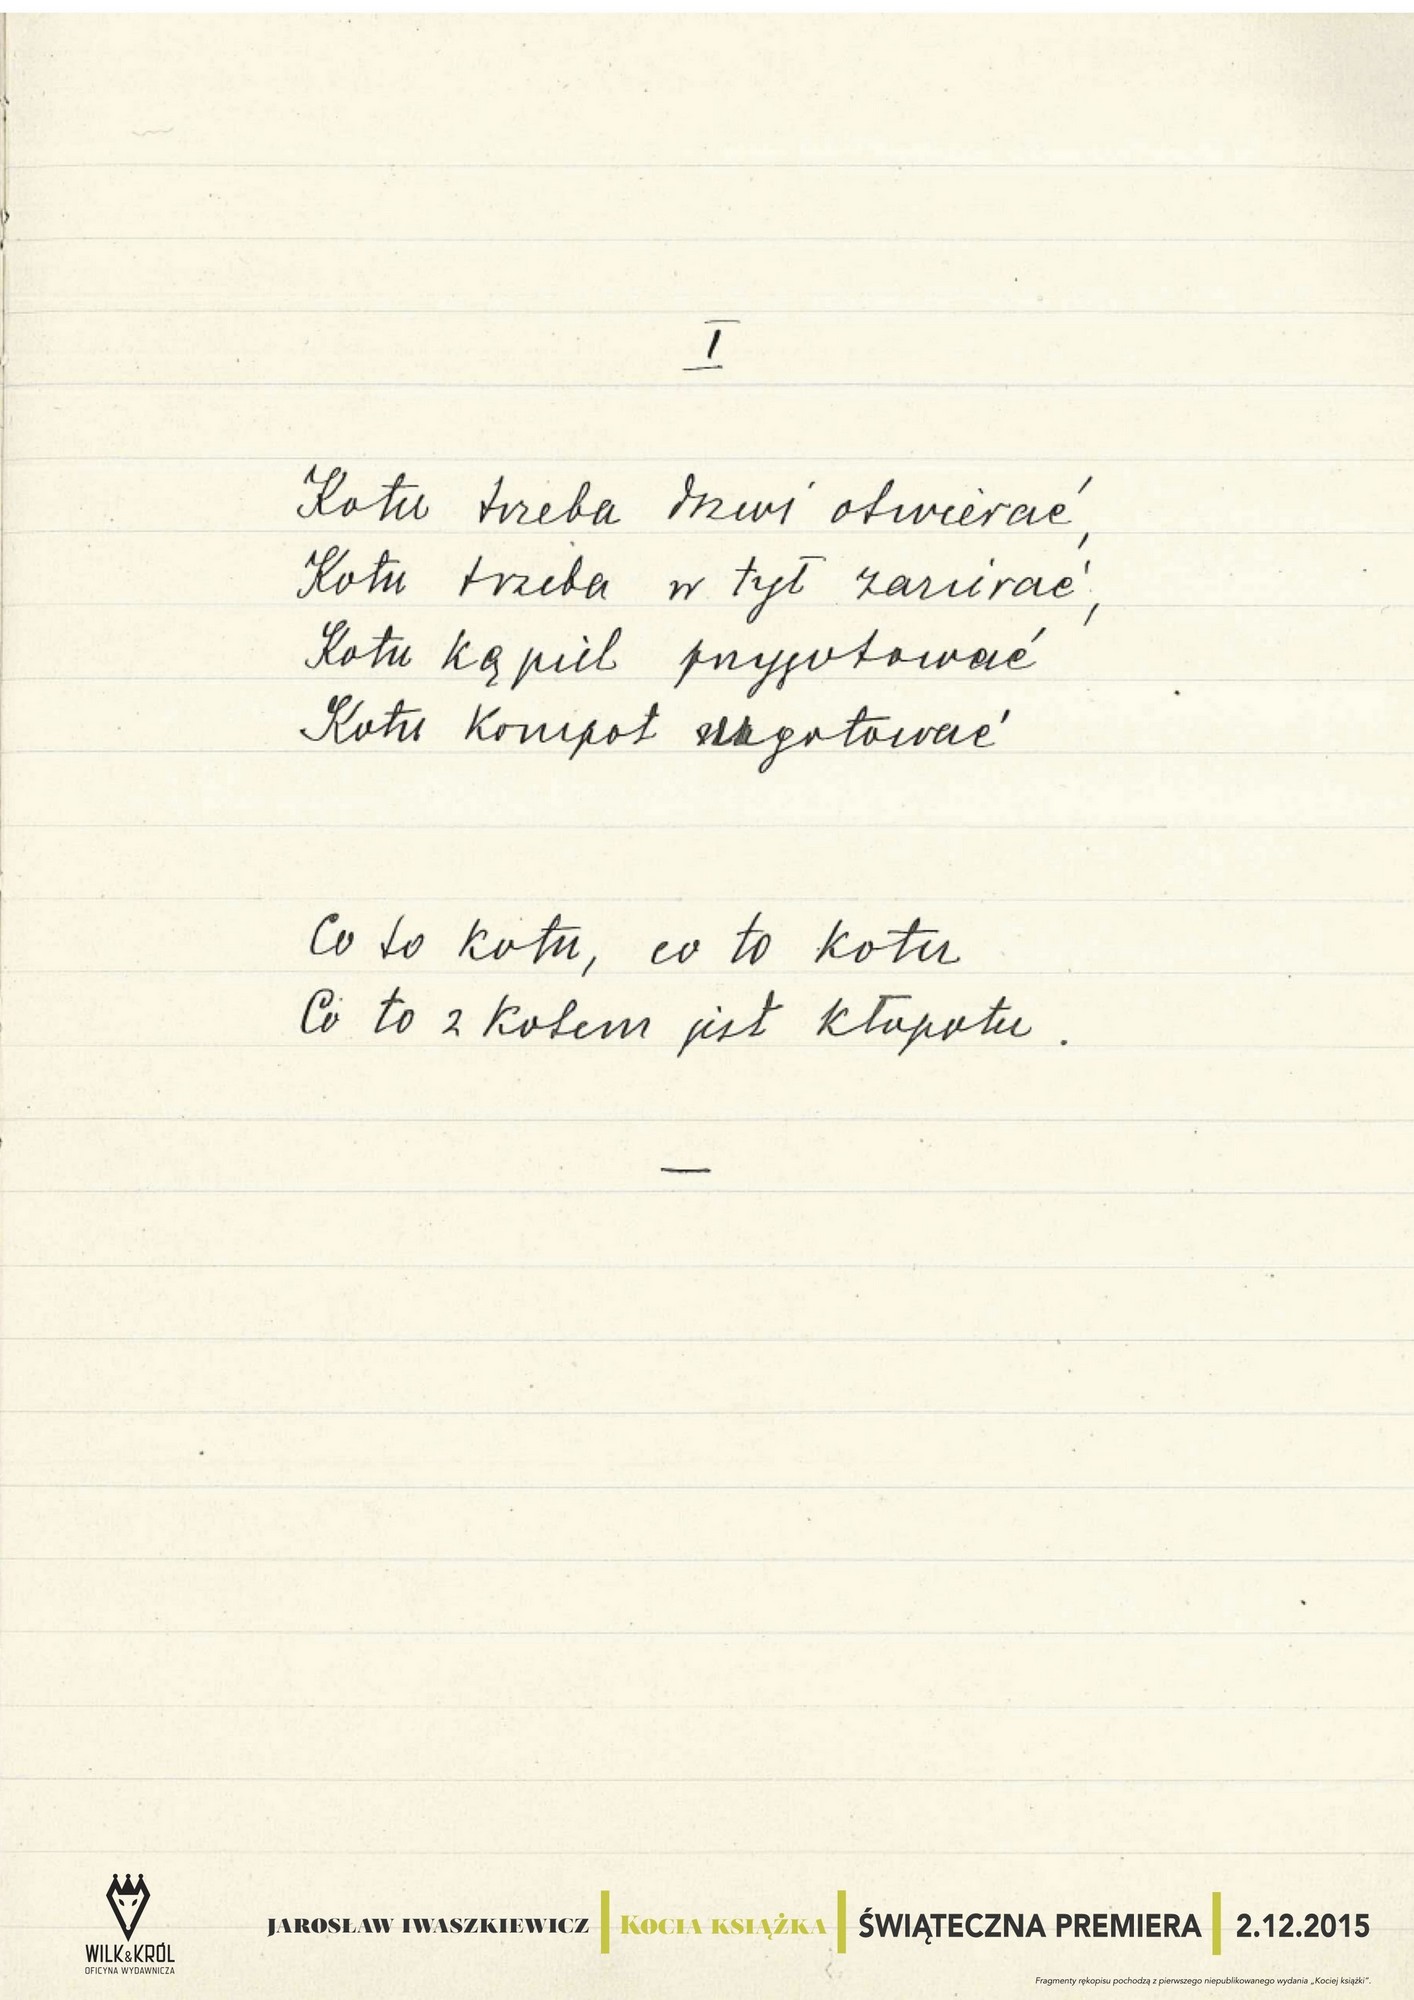 I
Kotu trzeba drzwi otwierać,
Kotu trzeba w tył zazierać,
Kotu kąpiel przygotować
Kotu kompot ugotować
Co to kotu, co to kotu
Co to z kotem jest kłopotu.
—
WILK&KRÓL
OFICYNA WYDAWNICZA
JAROSŁAW IWASZKIEWICZ | KOCIA KSIĄŻKA | ŚWIĄTECZNA PREMIERA | 2.12.2015
Fragmenty rękopisu pochodzą z pierwszego niepublikowanego wydania „Kociej książki”.